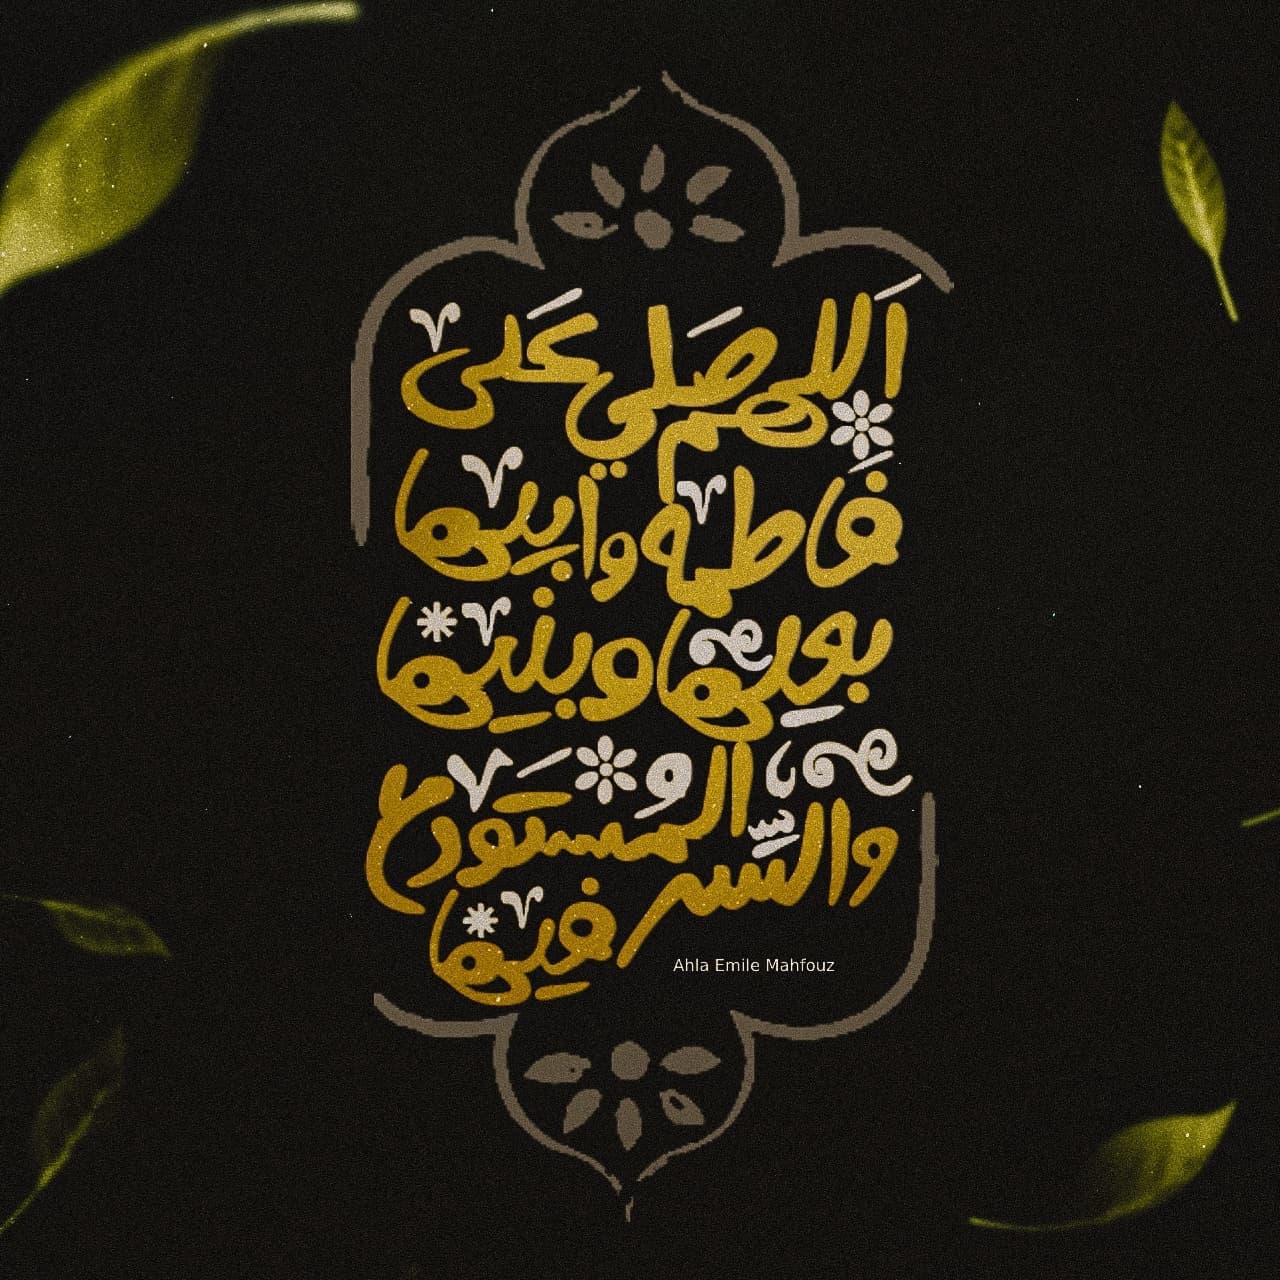 اَللهم صَلي عَلى
فَاطمه وابيها
بعلِيها وبنِيها
والسِّر المُستَودع
فيها
Ahla Emile Mahfouz